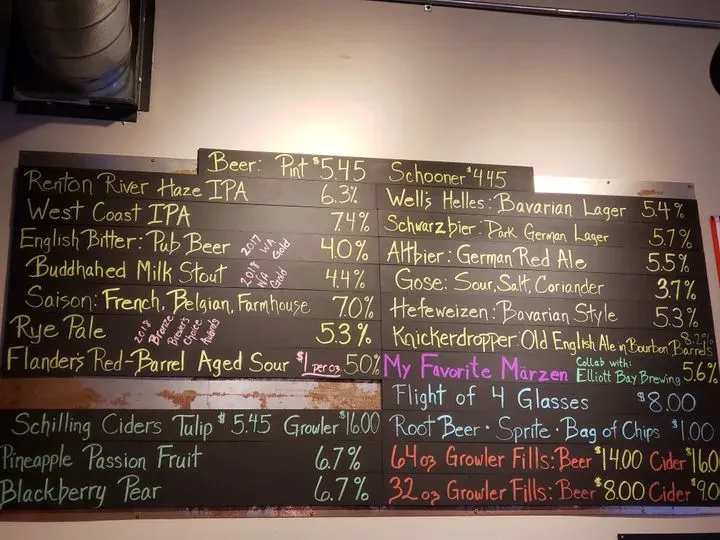 Beer: Pint $5.45 Schooner $4.45
Renton River Haze IPA 6.3%
West Coast IPA 7.4%
English Bitter: Pub Beer 2017 WA Gold 4.0%
Buddhahed Milk Stout 2018 WA Gold 4.4%
Saison: French, Belgian, Farmhouse 7.0%
Rye Pale 2018 Bronze Brewer's Choice Awards 5.3%
Flander's Red-Barrel Aged Sour $1 per oz 5.0%
Well's Helles: Bavarian Lager 5.4%
Schwarzbier: Dark German Lager 5.7%
Altbier: German Red Ale 5.5%
Gose: Sour, Salt, Coriander 3.7%
Hefeweizen: Bavarian Style 5.3%
Knickerdropper: Old English Ale in Bourbon Barrels 8.2%
My Favorite Märzen Collab with: Elliott Bay Brewing 5.6%
Flight of 4 Glasses $8.00
Root Beer · Sprite · Bag of Chips $1.00
64oz Growler Fills: Beer $14.00 Cider $16.0
32oz Growler Fills: Beer $8.00 Cider $9.0
Schilling Ciders Tulip $5.45 Growler $16.00
Pineapple Passion Fruit 6.7%
Blackberry Pear 6.7%